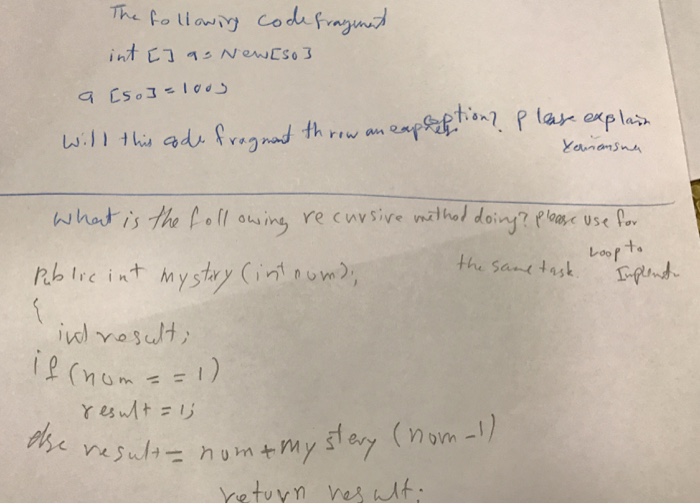 The following code fragment
int [] a = New[50]
a [50] = 100;
Will this code fragment throw an exception? Please explain
your answer
What is the following recursive method doing? please use for
loop to
the same task. Implement
Public int mystery (int num);
{
int result;
if (num == 1)
result = 1;
else result = num + mystery (num -1)
return result;